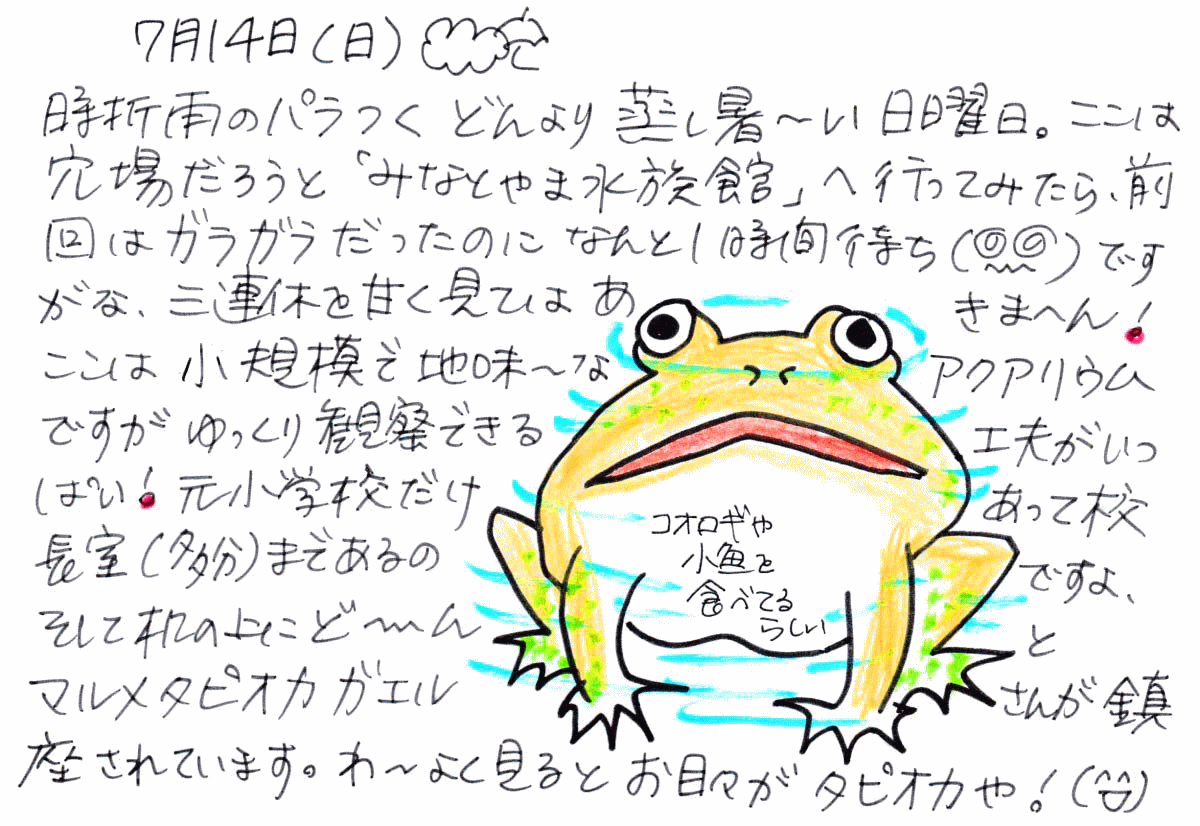 7月14日(日)
時折雨のパラつく どんより 蒸し暑〜い 日曜日。ここは
穴場だろうと「みなとやま水族館」へ行ってみたら、前
回はガラガラだったのに なんと1時間待ち(@@)です
がな、三連休を甘く見てはあ きまへん!
ここは 小規模で 地味〜な アクアリウム
ですが ゆっくり観察できる 工夫がいっ
ぱい! 元小学校だけ あって校
長室(多分)まであるの ですよ、
そして机の上にど〜〜ん と
マルメタピオカガエル さんが鎮
座されています。わ〜よく見ると お目々が タピオカや!(^^)
コオロギや
小魚を
食べてる
らしい